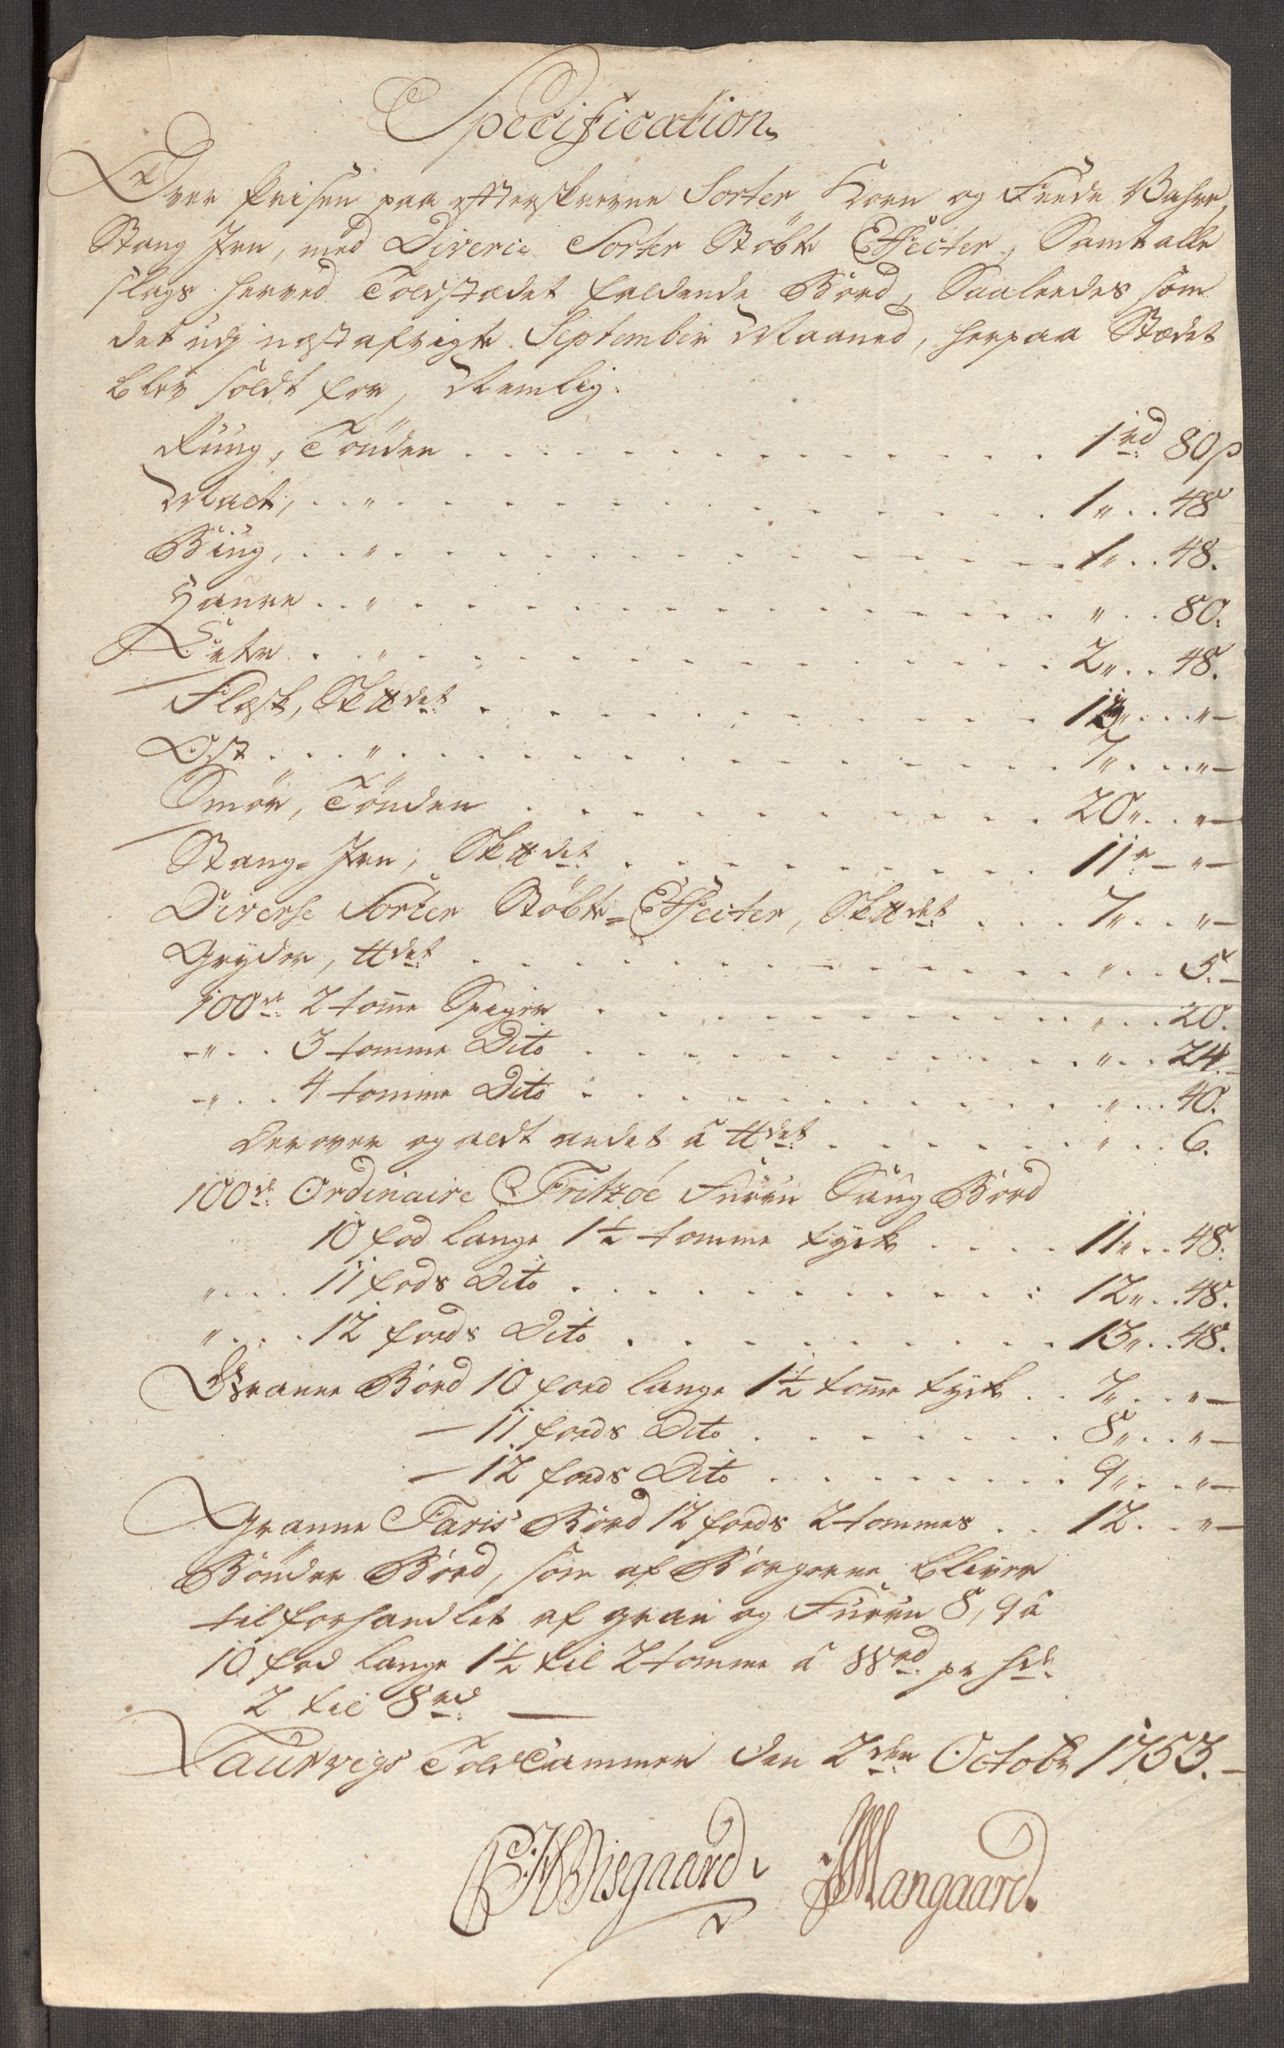 Specification
Over Prisen paa efterskrevne Sorter Korn og Feede Vahre,
Stang Jern, med Diverse Sorter Støbte Effecter, Samt alle
slags herved Toldstædet faldende Bord, Saaleedes som
det udj nestafvigte September Maaned, herpaa Stædet
blev soldt for, Nemlig.
Rüug, Tönden . . . 1 rd 80 s
Malt, . . " . . . 1 " . . 48
Biug, . . " . . . 1 " . . 48.
Haure . . " . . . " . . 80.
Erter . . " . . . 2 " . . 48.
Flæsk, Sk℔det . . . 12 " . . " —
Ost . . . " . . . 7 " . . " —
Smør, Tönden . . . 20 " . . " —
Stang-Jern, Sk℔det . . . 11 " — " —
Diverse Sorter Støbte-Effecter, Sk℔det . . . 7 " . . " —
Gryder, ℔det . . . " . . 5. —
100de 2 tomme Spiger . . . " . . 20.
— " . . 3 tomme Dito . . . " . . 24. —
— " . . 4 tomme Dito . . . " . . 40.
Derover og aldt andet â ℔det . . . " . . 6.
100de Ordinaire Fritzøe Furru Saug Bord
10 fod lange 1½ tomme tyck . . . 11 " . . 48.
" . . . 11 fods Dito . . . 12 " . . 48.
" . . . 12 fods Dito . . . 13 " . . 48.
Granne Bord 10 fod lange 1½ tomme tyck . . 7 " . . " —
— 11 fods Dito . . . 8 " . . " —
— 12 fods Dito . . . 9 " . . " —
Granne Faris Bord 12 fods 2 tommes . . 12. . " —
Bønder Bord, som af Borgerne bliver
tilforhandlet af gran og Furru 8, 9 â
10 fod lange 1½ til 2 tomme â rd pr
2 til 8 rd —
Laurvigs Told Cammer den 2den Octobr 1753. —
Wisgaard. Mangaard.